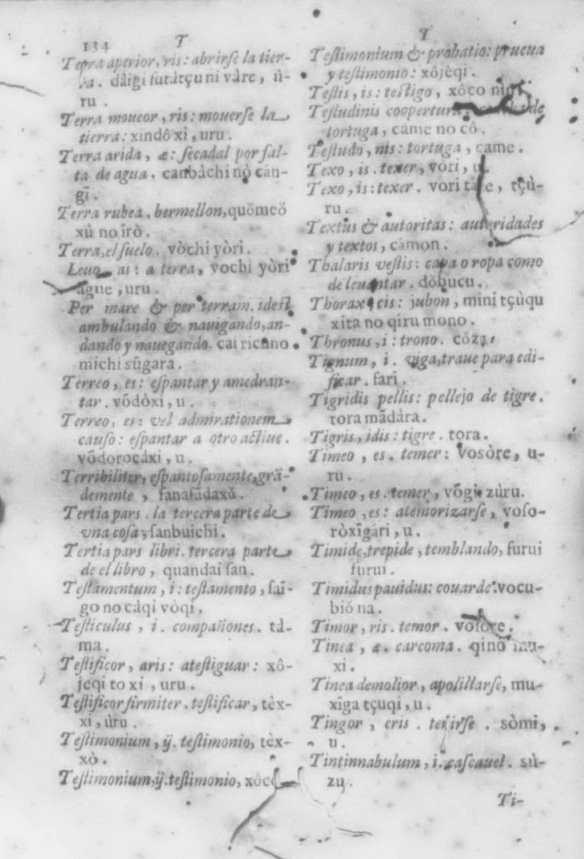 134 T
Terra aperior, ris: abrirse la tier-
ra. dàigi futàtçu ni vàre, ũ-
ru.
Terra moueor, ris: mouerse la
tierra: xindô xi, uru.
Terra arida, æ: secadal por fal-
ta de agua. canbàchi no càn-
gi.
Terra rubea. bermellon, quõmeõ
xù no irò.
Terra, el suelo. vòchi yòri.
Leuo, as: a terra, vochi yòri
ague, uru.
Per mare & per terram. idest
ambulando & nauigando, an-
dando y nauegando. cai ricuno
michi sũgara.
Terreo, es: espantar y amedran-
tar. võdòxi, u.
Terreo, es: vel admirationem
causo: espantar a otro actiue.
võdorocàxi, u.
Terribiliter, espantosamente, grã-
demente, fanafàdaxù.
Tertia pars. la tercera parte de
vna cosa, sanbuichi.
Tertia pars libri. tercera parte
de el libro, quandai san.
Testamentum, i: testamento, sai-
go no càqi vòqi,
Testiculus, i. compañones. tà-
ma.
Testificor, aris: atestiguar: xô-
jeqi to xi, uru.
Testificor firmiter. testificar, tèx-
xi, ùru.
Testimonium, ÿ. testimonio, tèx-
xò.
Testimonium, ÿ. testimonio, xôco
T
Testimonium & probatio: prueua
y testimonio: xòjèqi.
Testis, is: testigo, xôco nin.
Testudinis coopertura, de
tortuga, càme no cô.
Testudo, nis: tortuga, came.
Texo, is. texer, vori, u.
Texo, is: texer. vori tàte, tçù-
ru.
Textus & autoritas: autoridades
y textos, càmon.
Thalaris vestis: capa o ropa como
de leuantar. dòbucu.
Thorax, cis: jubon, mini tçùqu
xita no qiru mono.
Thronus, i: trono. còza.
Tignum, i. viga, traue para edi-
ficar. fari.
Tigridis pellis: pellejo de tigre.
tora mãdàra.
Tigris, idis: tigre. tora.
Timeo, es. temer: vosòre, u-
ru.
Timeo, es. temer, võgi zùru.
Timeo, es: atemorizarse, voso-
ròxigàri, u.
Timide, trepide, temblando, furui
furui.
Timidus pauidus: couarde. vocu-
biò na.
Timor, ris. temor. vosòre.
Tinea, æ. carcoma. qino mu-
xi.
Tinea demolior, apolillarse, mu-
xiga tçuqi, u.
Tingor, eris. teñirse. sòmi,
u.
Tintinnabulum, i. cascauel. sù-
zu.
Ti-